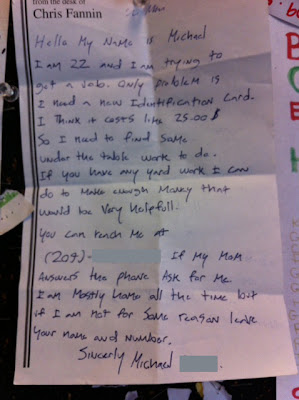 from the desk of
Chris Fannin
Hello My Name is Michael
I am 22 and I am trying to
get a Job. Only Problem is
I need a new Identification Card.
I Think it costs like 25.00$
So I need to find some
under the table work to do.
If you have any yard work I can
do to Make enough Money that
would be Very helpfull.
You can reach Me at
(209)- If My Mom
Answers the phone Ask for Me
I am Mostly home all the time but
if I am not for Some reason leave
Your name and Number.
Sincerly Michael